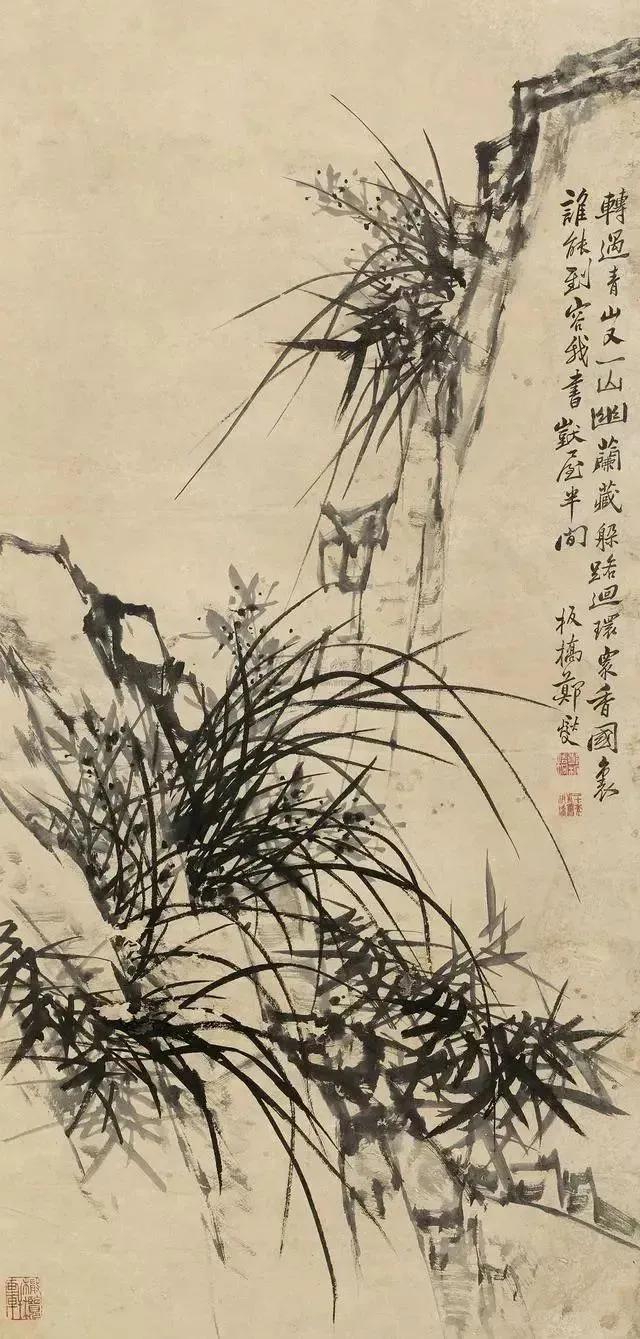 轉過青山又一山幽蘭藏躲路迴環衆香國裏
誰能到容我書獃屋半間
板橋鄭燮